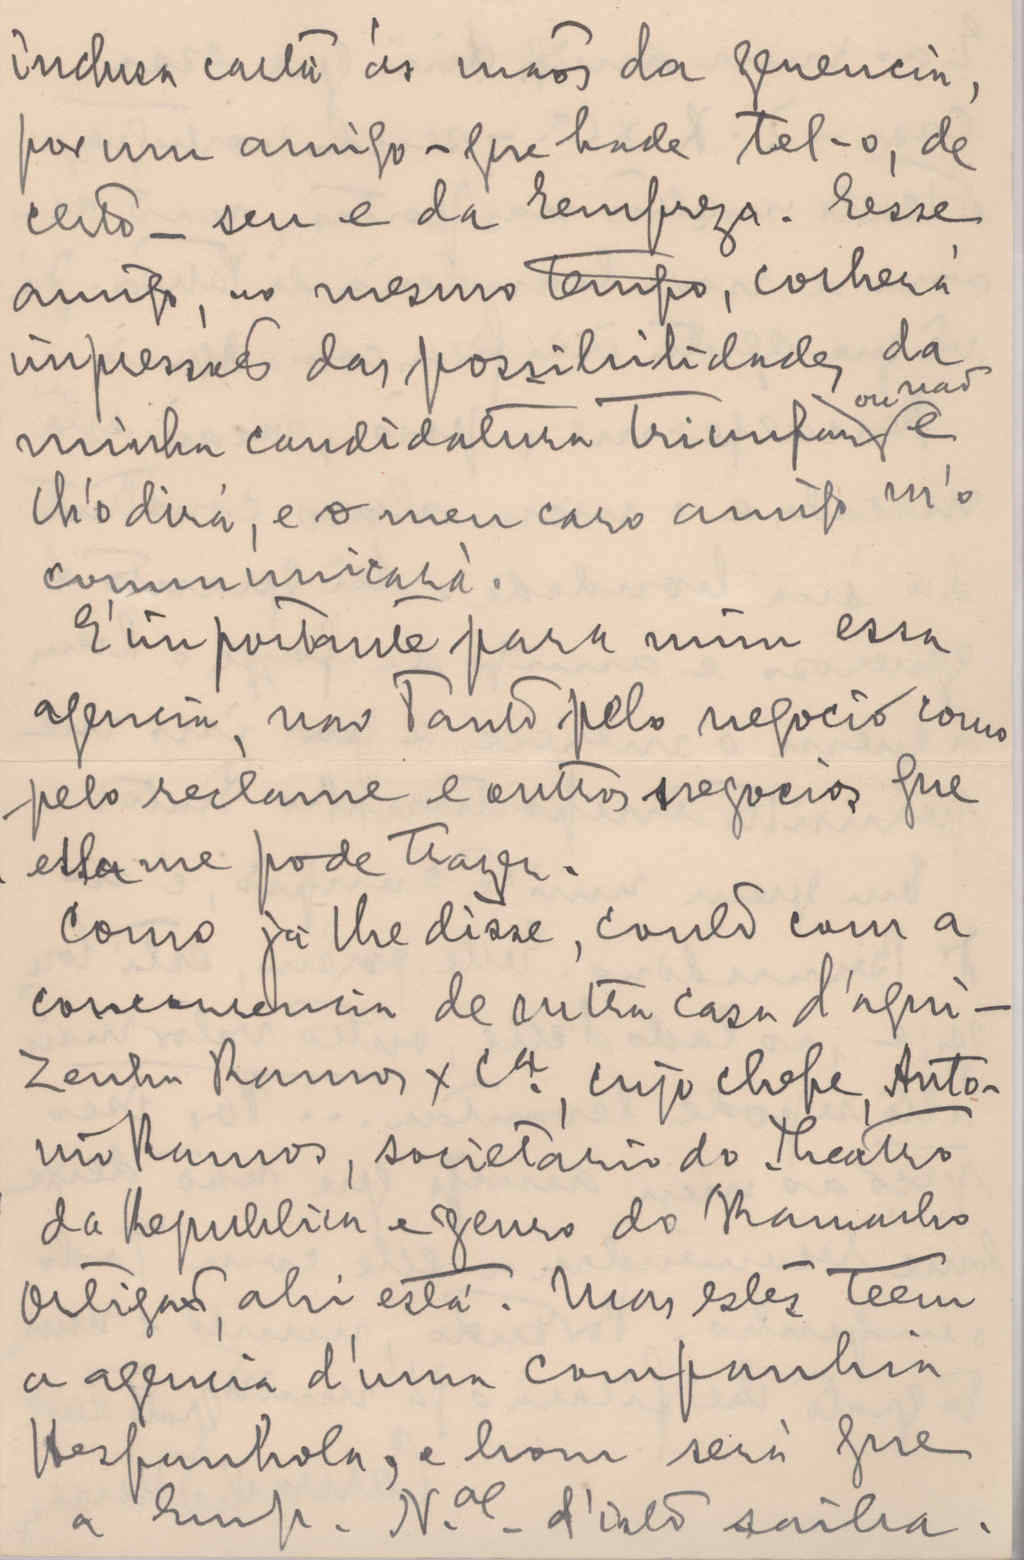 inclusa carta ás mãos da gerencia,
por um amigo - que hade tel-o, de
certo - seu e da Empreza. Esse
amigo, ao mesmo tempo, colherá
impressões das possibilidades da
minha candidatura triunfar ou não e
lh'o dirá, e o meu caro amigo m'o
communicará.
É importante para mim essa
agencia, não tanto pelo negocio como
pelo reclame e outros negocios que
ella me pode trazer.
Como já lhe disse, conto com a
concorrencia de outra casa d'aqui -
Zenha Ramos & Cª., cujo chefe, Anto-
nio Ramos, societario do Theatro
da Republica e genro do Ramalho
Ortigão, ahi está. Mas estes teem
a agencia d'uma companhia
Hespanhola, e bom será que
a Emp. N.al - d'isto saiba.